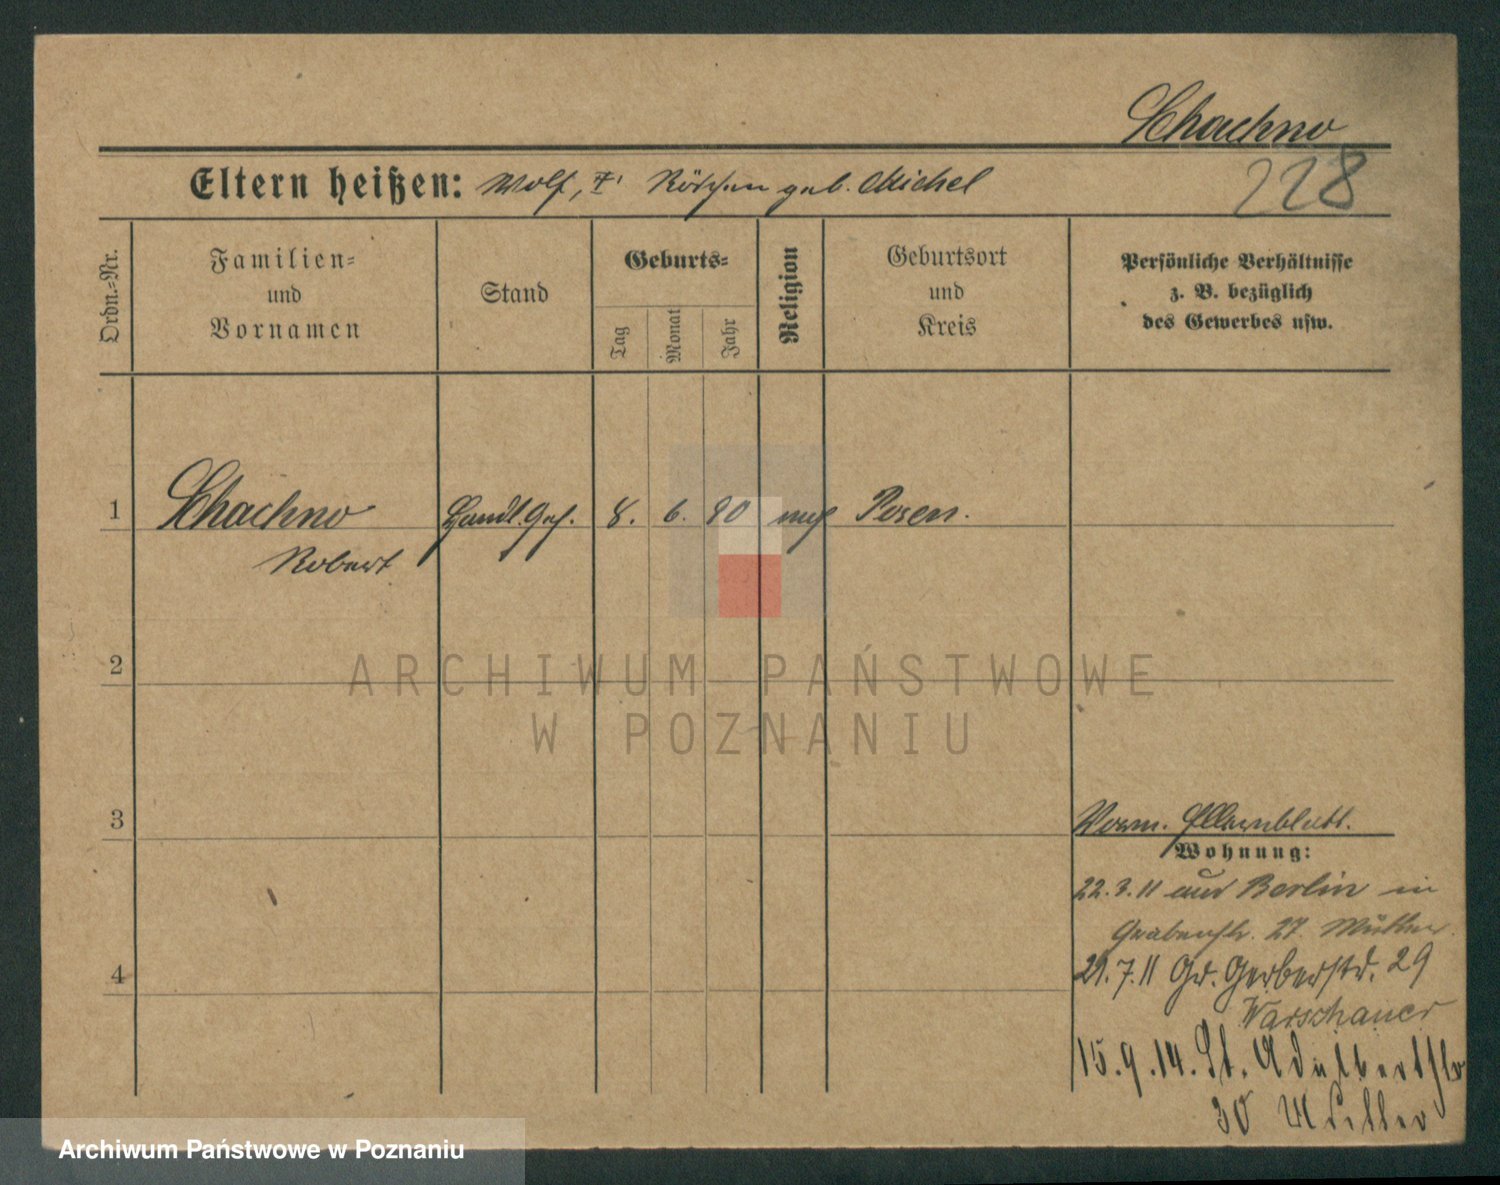 Schachno
Eltern heißen: Wolf, Röschen geb. Michel
228
Ordn.-Nr.
Familien-
und
Vornamen
Stand
Geburts-
Tag
Monat
Jahr
Religion
Geburtsort
und
Kreis
Persönliche Verhältnisse
z. B. bezüglich
des Gewerbes usw.
1 Schachno Handl. Geh. 8. 6. 90 mos Posen.
Robert
2
ARCHIWUM PAŃSTWOWE
W POZNANIU
3
Vorm. Elternblatt.
Wohnung:
22.3.11 aus Berlin in
Grabenstr. 27.
4
21.7.11 Gr. Gerberstr. 29
Warschauer
15.9.14. St. Adalbertstr
30
Archiwum Państwowe w Poznaniu